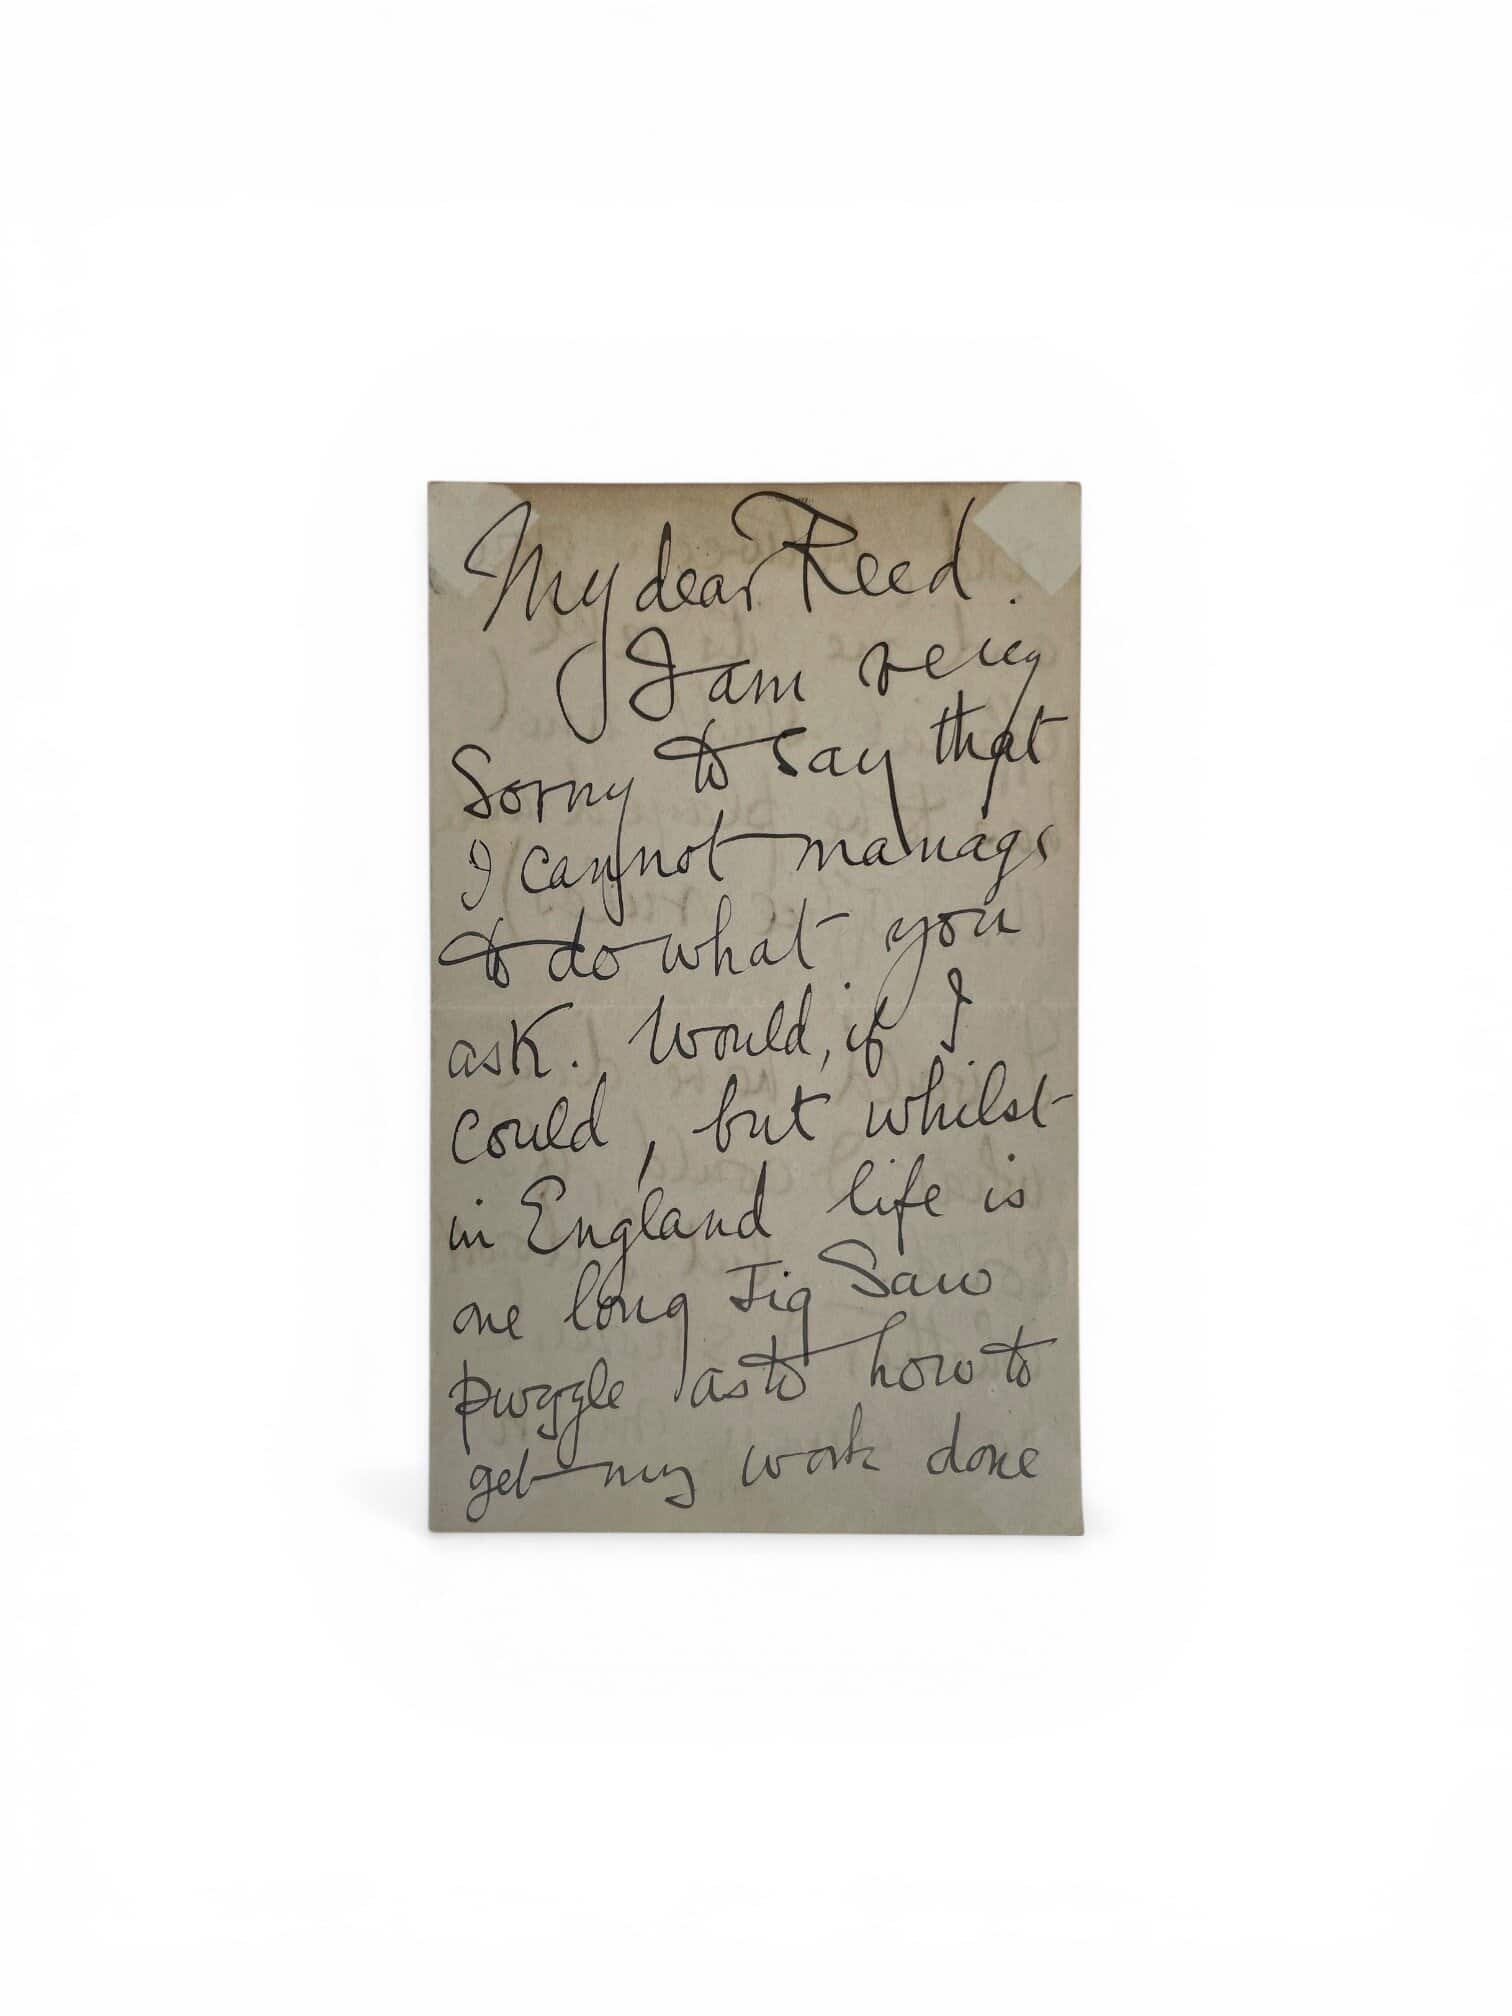 My dear Reed.
I am very
Sorry to say that
I cannot manage
to do what you
ask. Would, if I
could, but whilst
in England life is
one long Jig Saw
puzzle as to how to
get my work done